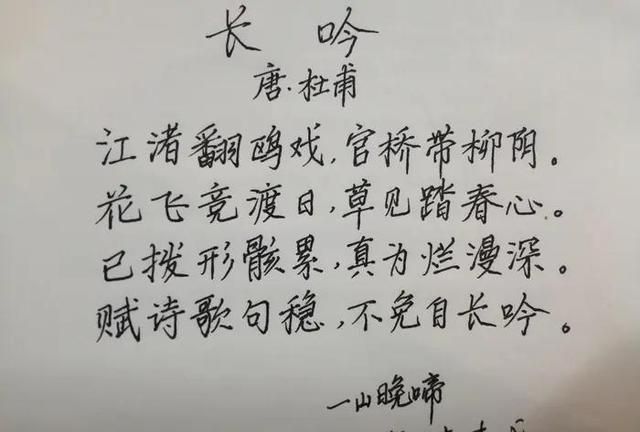 长 吟
唐·杜甫
江渚翻鸥戏,官桥带柳阴。
花飞竞渡日,草见踏春心。
已拨形骸累,真为烂漫深。
赋诗歌句稳,不免自长吟。
一山晚啼